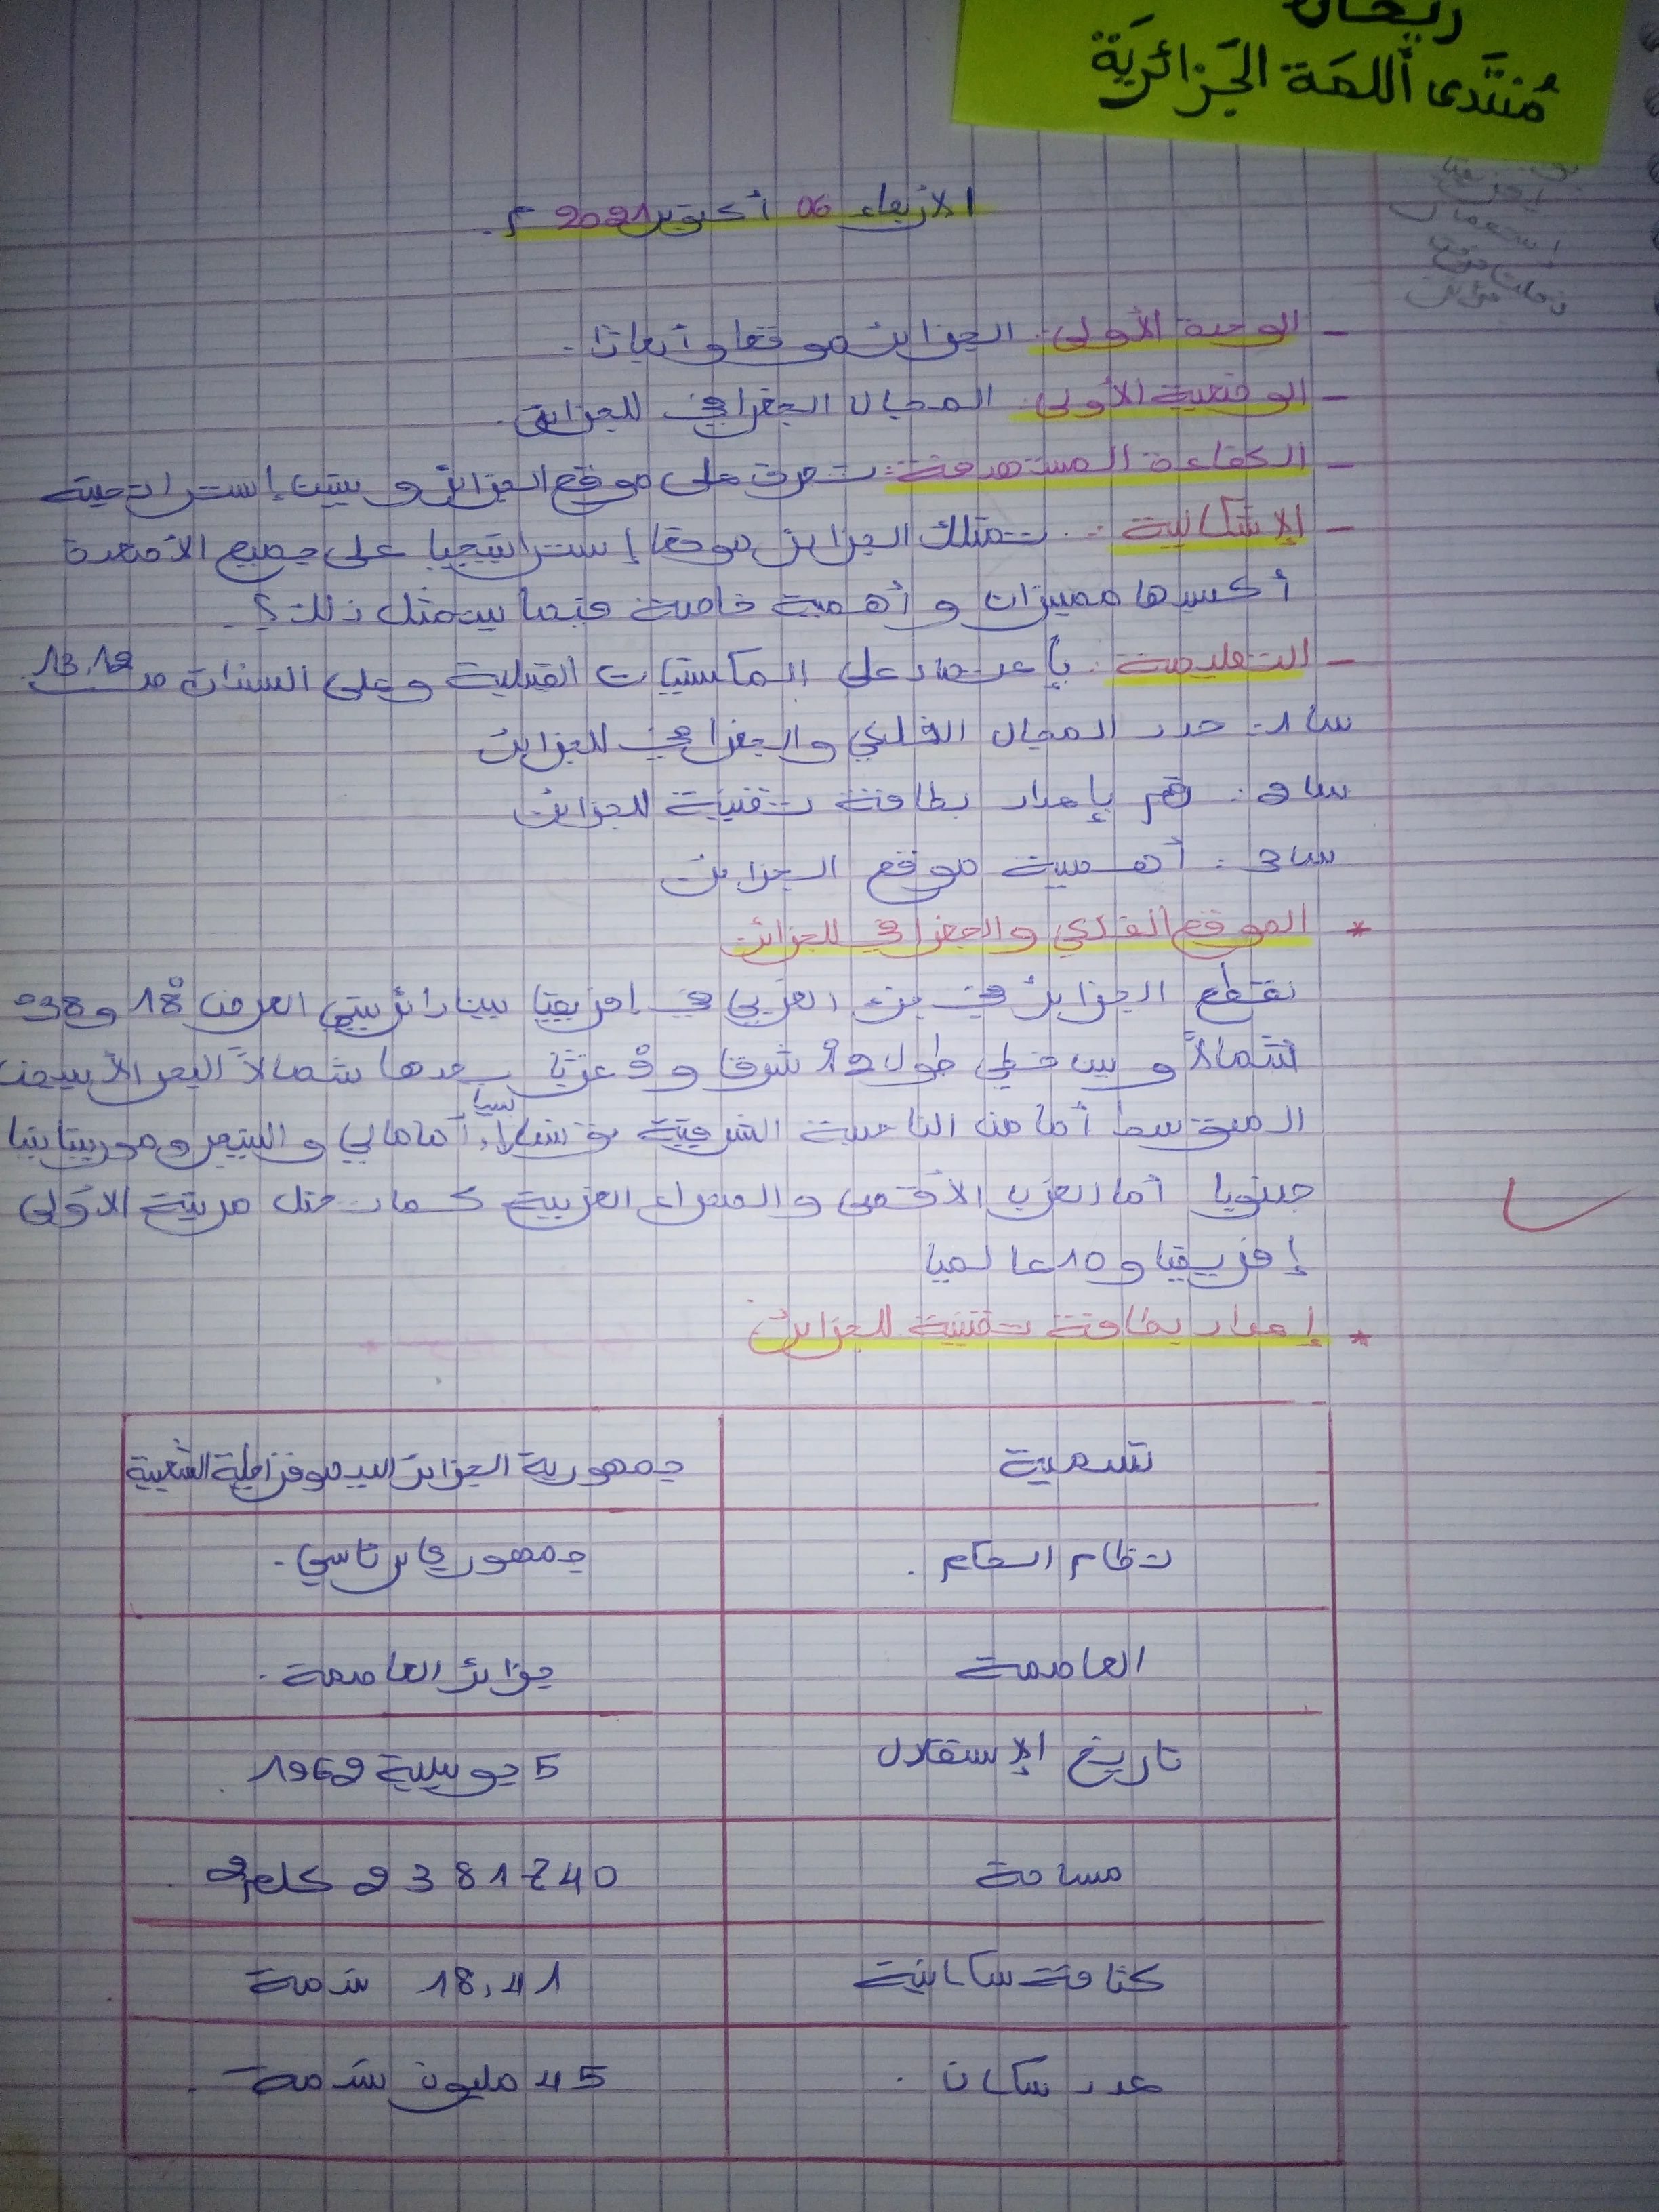 ريحان
مُنتَدى اللمَة الجَزائريَة
الأربعاء 06 أكتوبر 2021 م.
- الوحدة الأولى: الجزائر موقعا وأبعادا.
- الوضعية الأولى: المجال الجغرافي للجزائر.
- الكفاءة المستهدفة: تعرف على موقع الجزائر و يبين إستراتجيته
- الإشكالية: تمتلك الجزائر موقعا إستراتيجيا على جميع الأصعدة
أكسبها مميزات و أهمية خاصة فيما يتمثل ذلك؟.
- التعليمة: بإعتماد على المكتسبات القبلية وعلى السندات ص 12، 13
س1: حدد المجال الفلكي والجغرافي للجزائر
س2: قم بإعداد بطاقة تقنية للجزائر
س3: أهمية موقع الجزائر
* الموقع الفلكي والجغرافي للجزائر
تقع الجزائر في جزء الغربي في إفريقيا بين دائريتي العرض 18° و 38°
شمالاً و بين خطي طول 12° شرقا و 9° غربا يحدها شمالاً البحر الأبيض
المتوسط أما من الناحية الشرقية تونس ليبيا أما مالي و النيجر و موريتانيا
جنوبا أما الغرب الأقصى والصحراء الغربية كما تحتل مرتبة الأولى
إفريقيا و 10 عالميا
* إعداد بطاقة تقنية للجزائر
تسمية جمهورية الجزائر الديموقراطية الشعبية
نظام الحكم. جمهوري رئاسي.
العاصمة جزائر العاصمة.
تاريخ الإستقلال 5 جويلية 1962.
مساحة 2381740 كلم2.
كثافة سكانية 18,41 نسمة
عدد سكان. 45 مليون نسمة.